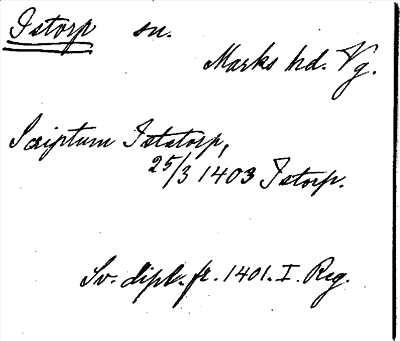 Istorp sn.
Marks hd. Vg.
Scriptum Iststorp,
25/3 1403 Istorp.
Sv. dipl. fr. 1401. I. Reg.